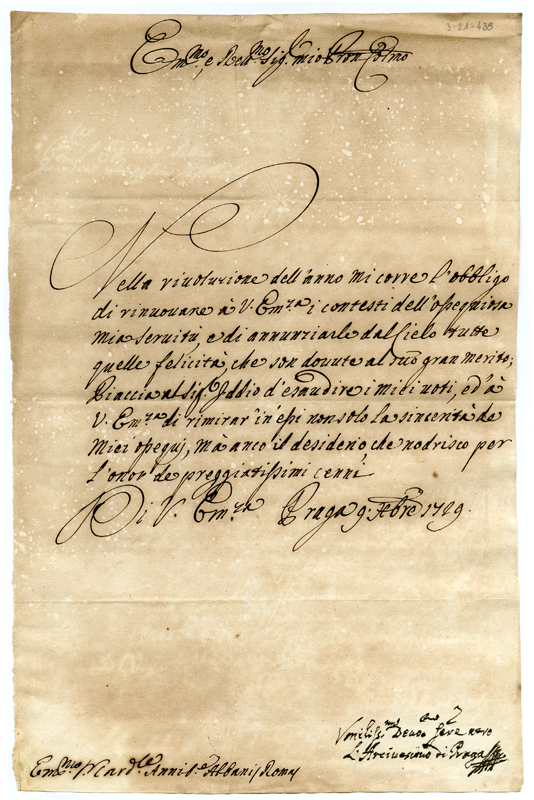 3-21-438
Em.mo, e Reu.mo Sig. mio Pron Colmo
Nella riuoluzione dell'anno mi corre l'obbligo
di rinuouare à V. Em.za i contesti dell'ossequiosa
mia seruitù, e di annunziarle dal Cielo tutte
quelle felicità, che son douute al suo gran merito;
Piaccia al Sig. Iddio d'esaudire i miei uoti, ed à
V. Em.za di rimirar in essi non solo la sincerità de
miei ossequj, mà anco il desiderio, che nodrisco per
l'onor de preggiatissimi cenni
Di V. Em.za Praga 9. Xbre 1729.
Vmiliss.mo Deuo.mo Seru
L'Arciuescouo di Praga
Em.mo Card.le Annib.e Albani Roma